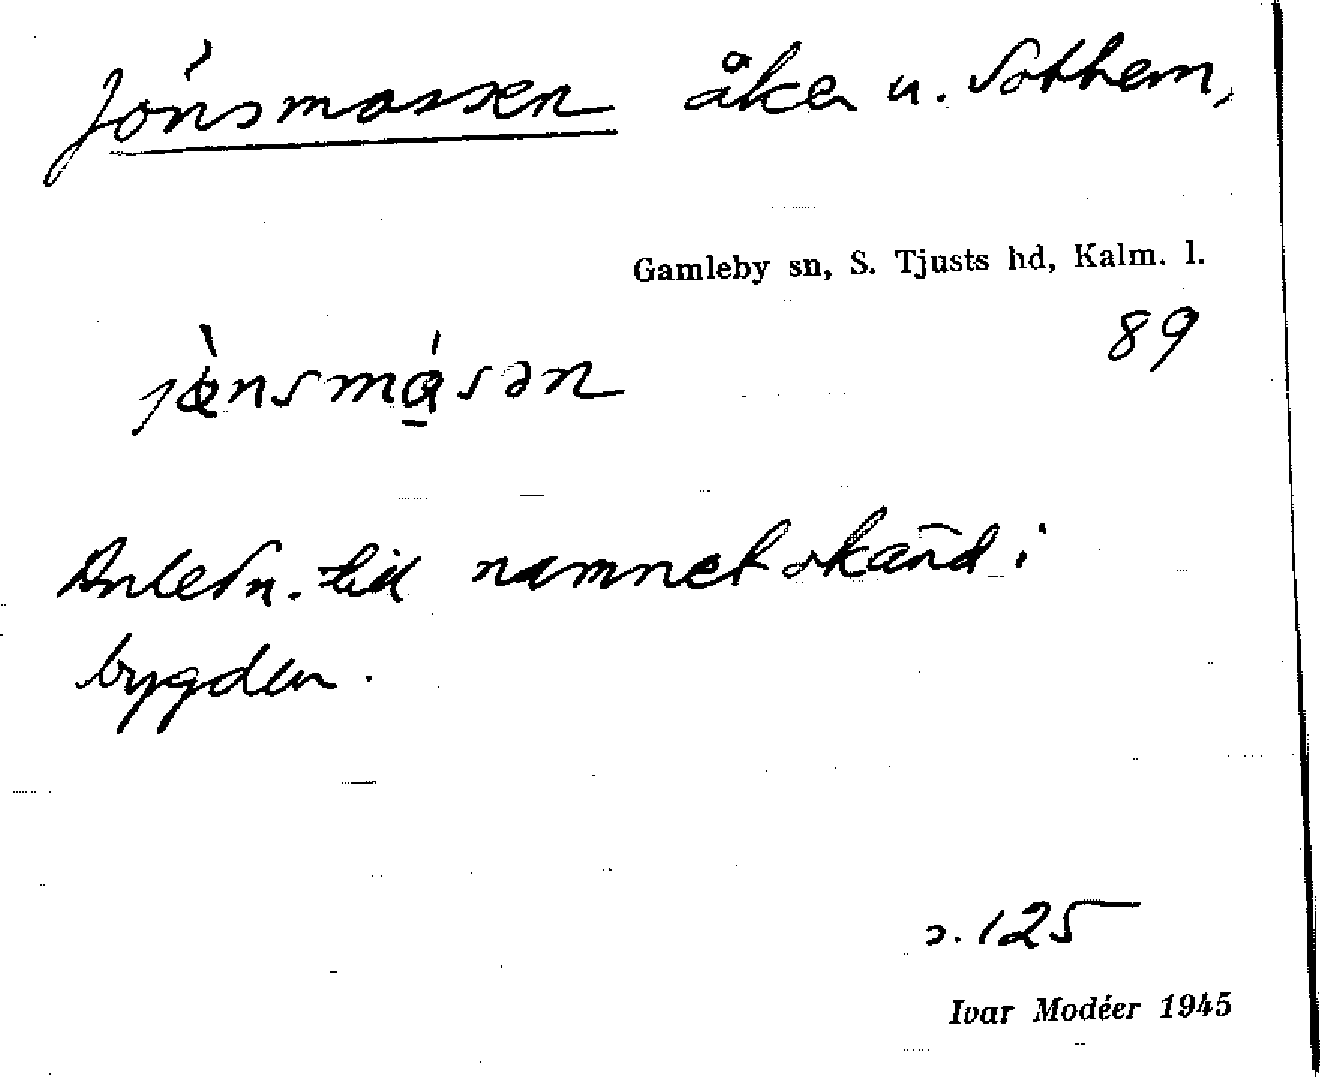 Jónsmossen åker u. Sothem,
Gamleby sn, S. Tjusts hd, Kalm. l.
89
Anledn. till namnet okänd i
bygden.
s. 125
Ivar Modéer 1945